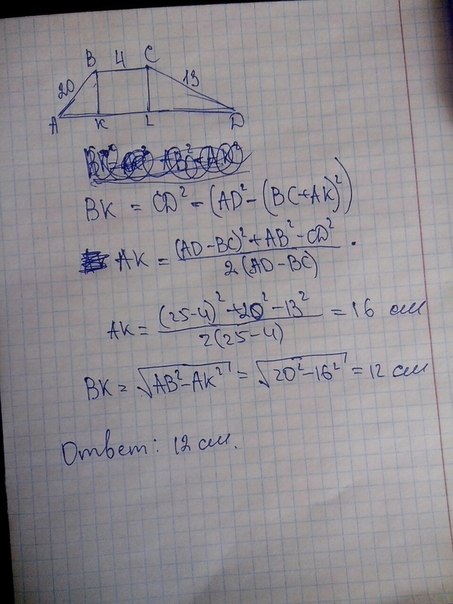 B 4 C
20 13
A K L D
BK = CD² - (AD² - (BC+AK)²)
AK = (AD-BC)² + AB² - CD² / 2(AD-BC) .
AK = (25-4)² + 20² - 13² / 2(25-4) = 16 см
BK = √AB²-AK² = √20²-16² = 12 см
Ответ: 12 см.